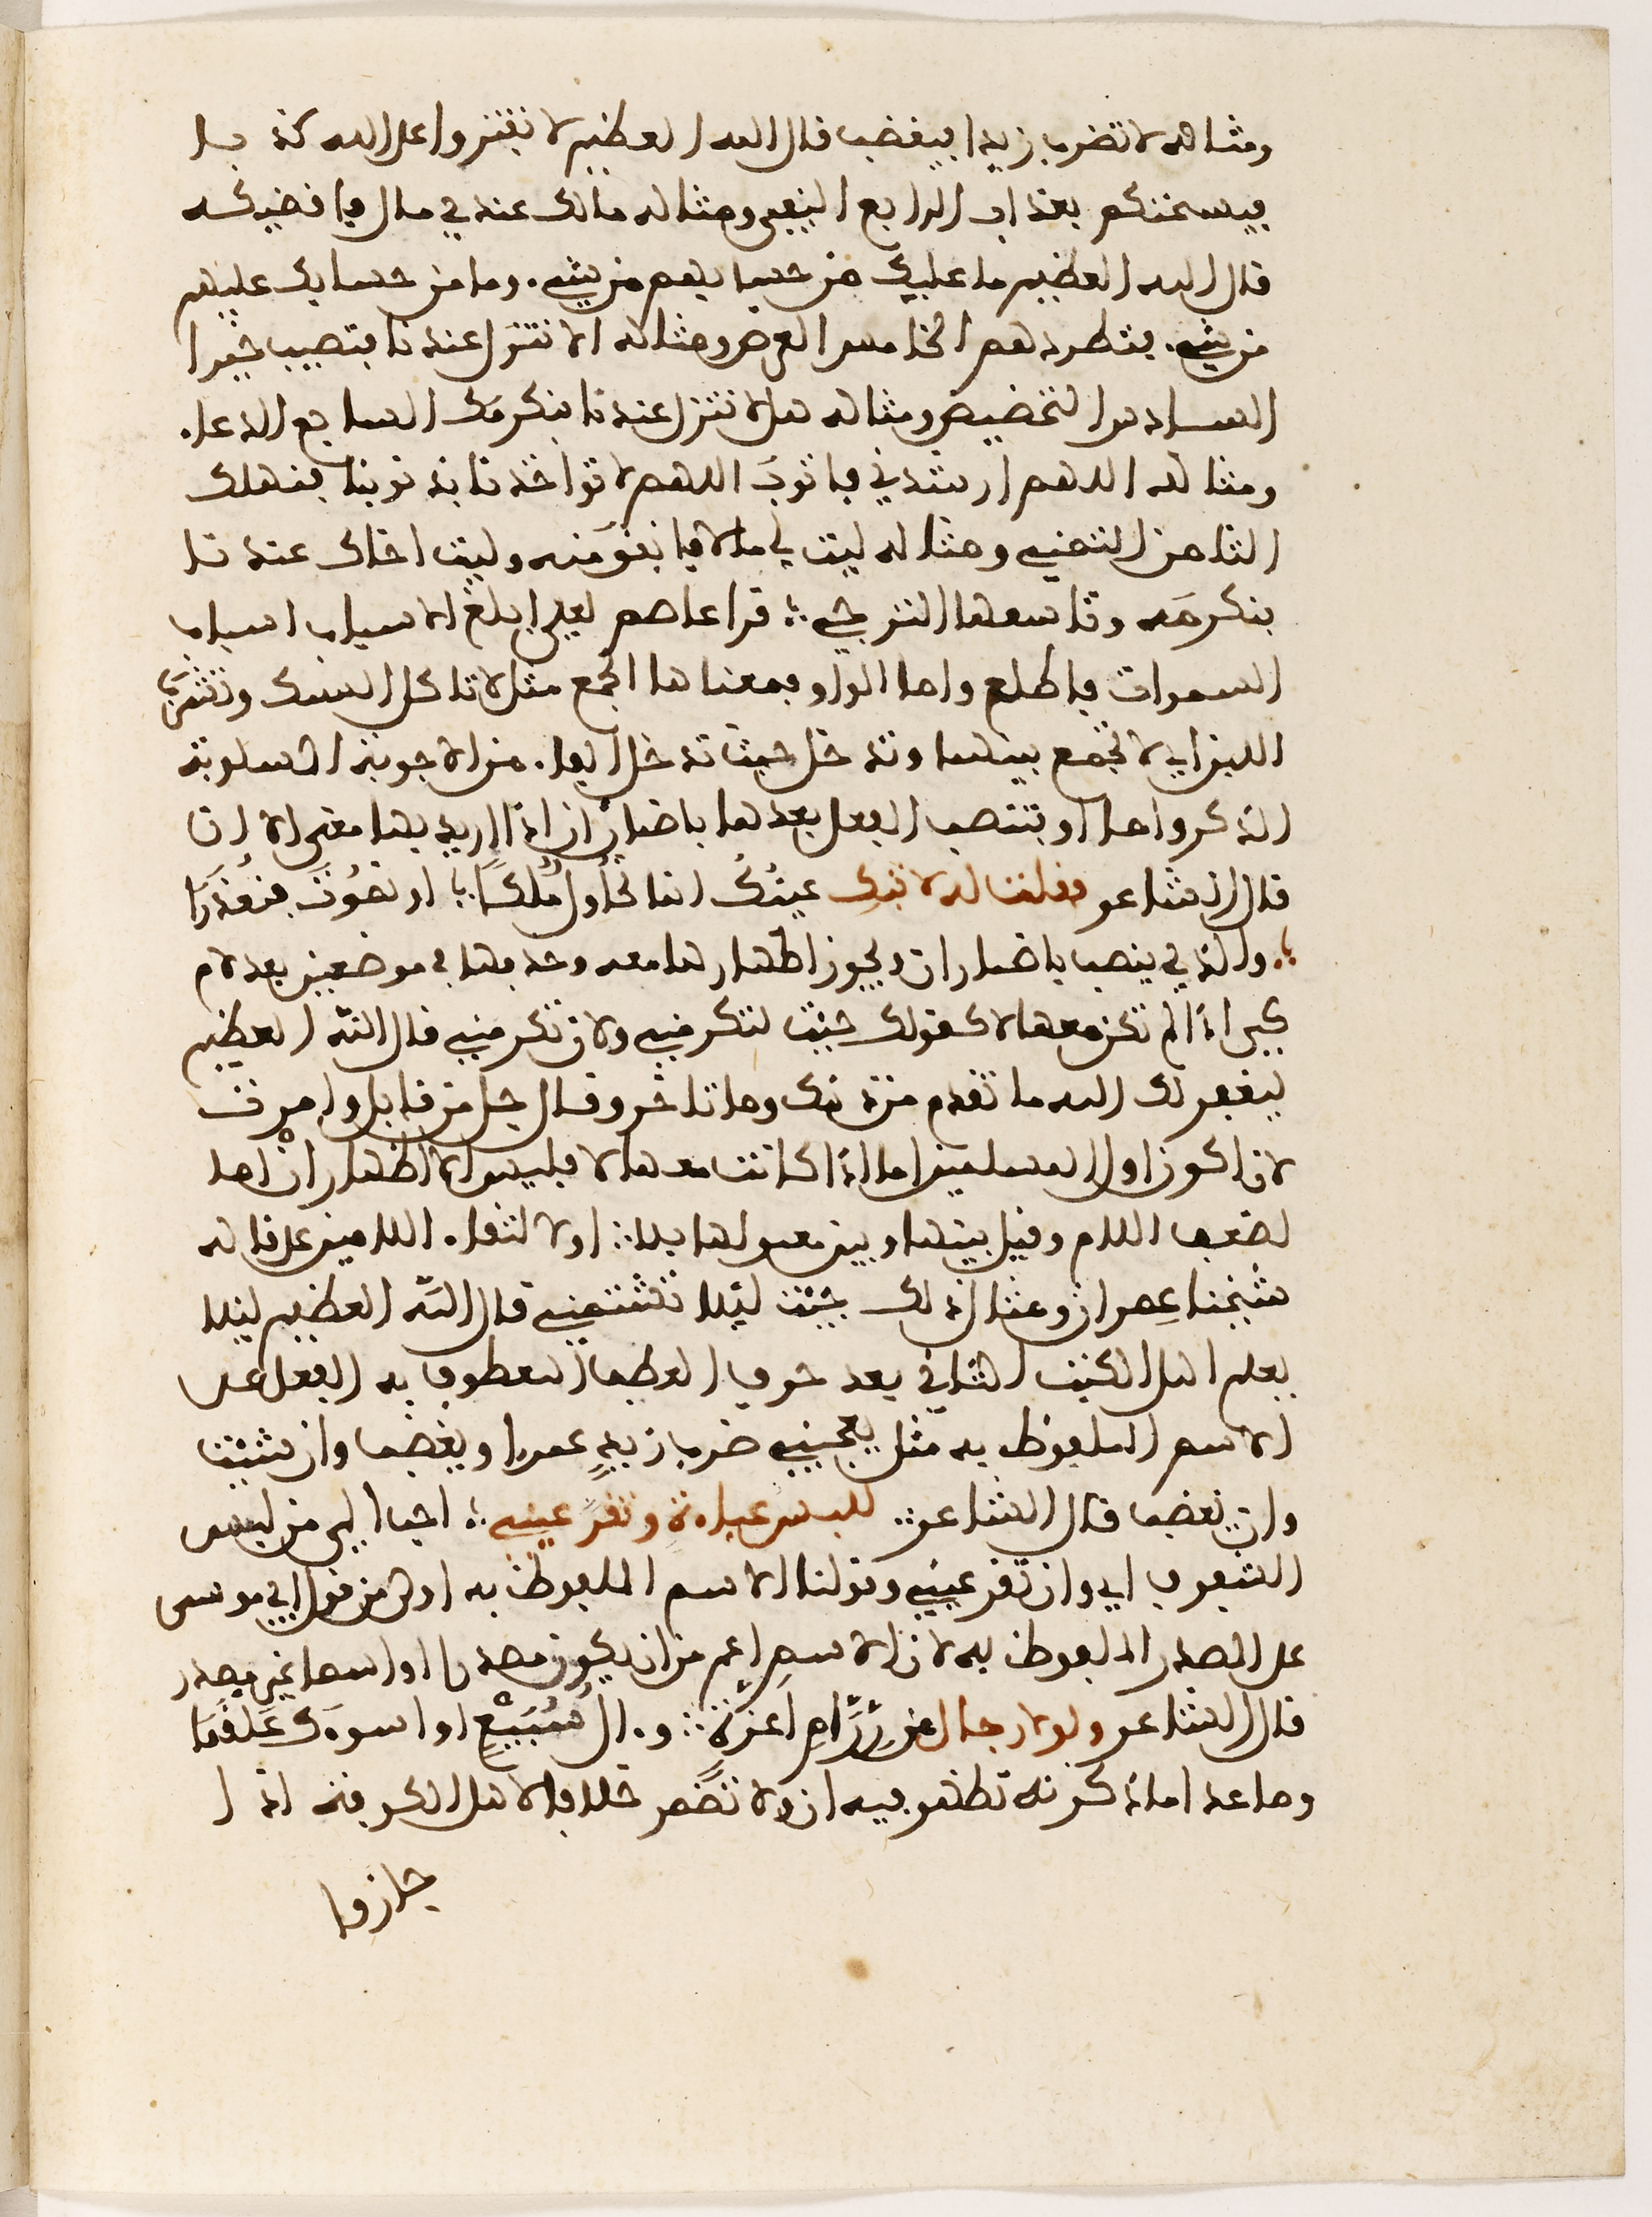 ومثاله لا تضرب زيدا فيغضب قال الله العظيم لا تفتروا على الله كذبا
فيسحتكم بعذاب الرابع النفي ومثاله مالك عندي مال فاقضيكه
قال الله العظيم ما عليك من حسابهم من شيء. وما من حسابك عليهم
من شيء. فتطردهم الخامس العرض ومثاله الا تنزل عندنا فتصيب خيرا
السادس التحضيض ومثاله هلا تنزل عندنا فنكرمك السابع الدعاء.
ومثاله اللهم ارشدني فاتوبَ اللهم لا تواخذنا بذنوبنا فنهلك
الثامن التمني ومثاله ليت لي مالا فانفقَ منه وليت اخاك عندنا
فنكرمَه وتاسعها الترجي ؛ قرا عاصم لعلي ابلغ الاسباب اسباب
السموات فاطلع واما الواو فمعناها الجمع مثل لا تاكل السمك وتشربَ
اللبن اي لا تجمع بينهما وتدخل حيث تدخل الفاء. من الاجوبة المسلوبة
الذكر واما او فتنصب الفعل بعدها باضمار ان اذا اريد بها معنى الا ان
قال الشاعر فقلت له لا تبك عينُك انما نحاول مُلكًا ؛ او نموت فنعذرَا
؛. والذي ينصب باضمار ان ويجوز اظهارها معه وحذفها في موضعين بعد لام
كي اذا لم تكن معها لا كقولك جئت لتكرمني ولان تكرمني قال الله العظيم
ليغفر لك الله ما تقدم من ذنبك وما تاخر وقال جل من قايل وامرت
لان اكون اول المسلمين اما اذا كانت معها لا فليس الا اظهار انْ اما
لضعف اللام وفيل بينها وبين معمولها بلا ؛ او لالتقاء. اللامين على قاله
شيخنا عمران ومثال ذلك جئت ليلا تشتمني قال الله العظيم ليلا
يعلم اهل الكتب الثاني بعد حرف العطف المعطوف به الفعل على
الاسم الملفوظ به مثل يعجبني ضرب زيدٍ عمرا ويغضب وان شئت
وان يغضب قال الشاعر ؛ للبس عباءةٍ وتقرَّ عيني ؛ احب الي من لبس
الشفوف اي وان تقر عيني وقولنا الاسم الملفوظ به اولى من قول ابي موسى
على المصدر الملفوظ به لان الاسم اعم من ان يكون مصدرا او اسما غير مصدر
قال الشاعر ولولا رجال من رِزَامٍ اعزّة ؛ وءال سُبَيْعٍ او اسوءَك عَلقَمَا
وما عدا ما ذكرته تظهر فيه ان ولا تضمر خلافا لاهل الكوفة اذا
جازوا